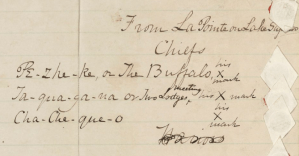 From La Pointe on Lake Superior
Chiefs
Pe-zhe-ke, or The Buffalo, his x mark
Ta-qua-ga-na or Two Lodges, meeting his x mark
Cha-che-que-o his x mark